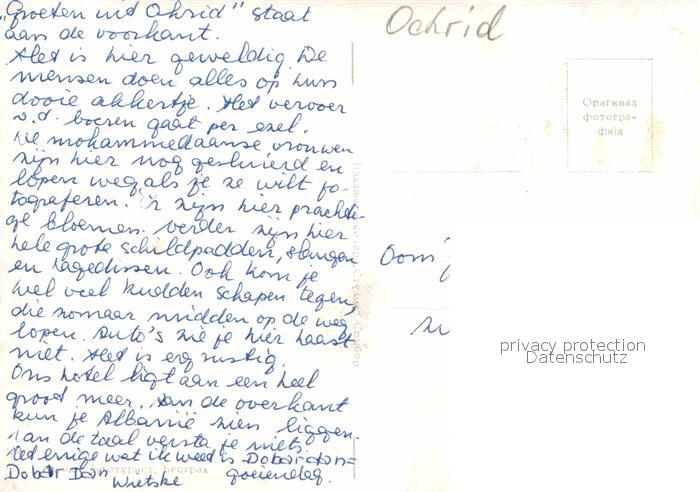 „Groeten uit Ohrid" staat
aan de voorkant.
Het is hier geweldig. De
mensen doen alles op hun
dooie akkertje. Het vervoer
v.d. boeren gaat per ezel.
De mohammedaanse vrouwen
zijn hier nog gesluierd en
lopen weg, als je ze wilt fo-
tograferen. Er zijn hier prachti-
ge bloemen. Verder zijn hier
hele grote schildpadden, slangen
en hagedissen. Ook kom je
heel veel kudden schapen tegen,
die zomaar midden op de weg
lopen. Auto's zie je hier haast
niet. Het is erg rustig.
Ons hotel ligt aan een heel
groot meer. Aan de overkant
kun je Albanië zien liggen.
Van de taal versta je niets.
Het enige wat ik weet is Dobar dan=
Dobar Dan goeiendag.
Wietske
Ochrid
Оригинал
фотогра-
фија
Oom
privacy protection
Datenschutz